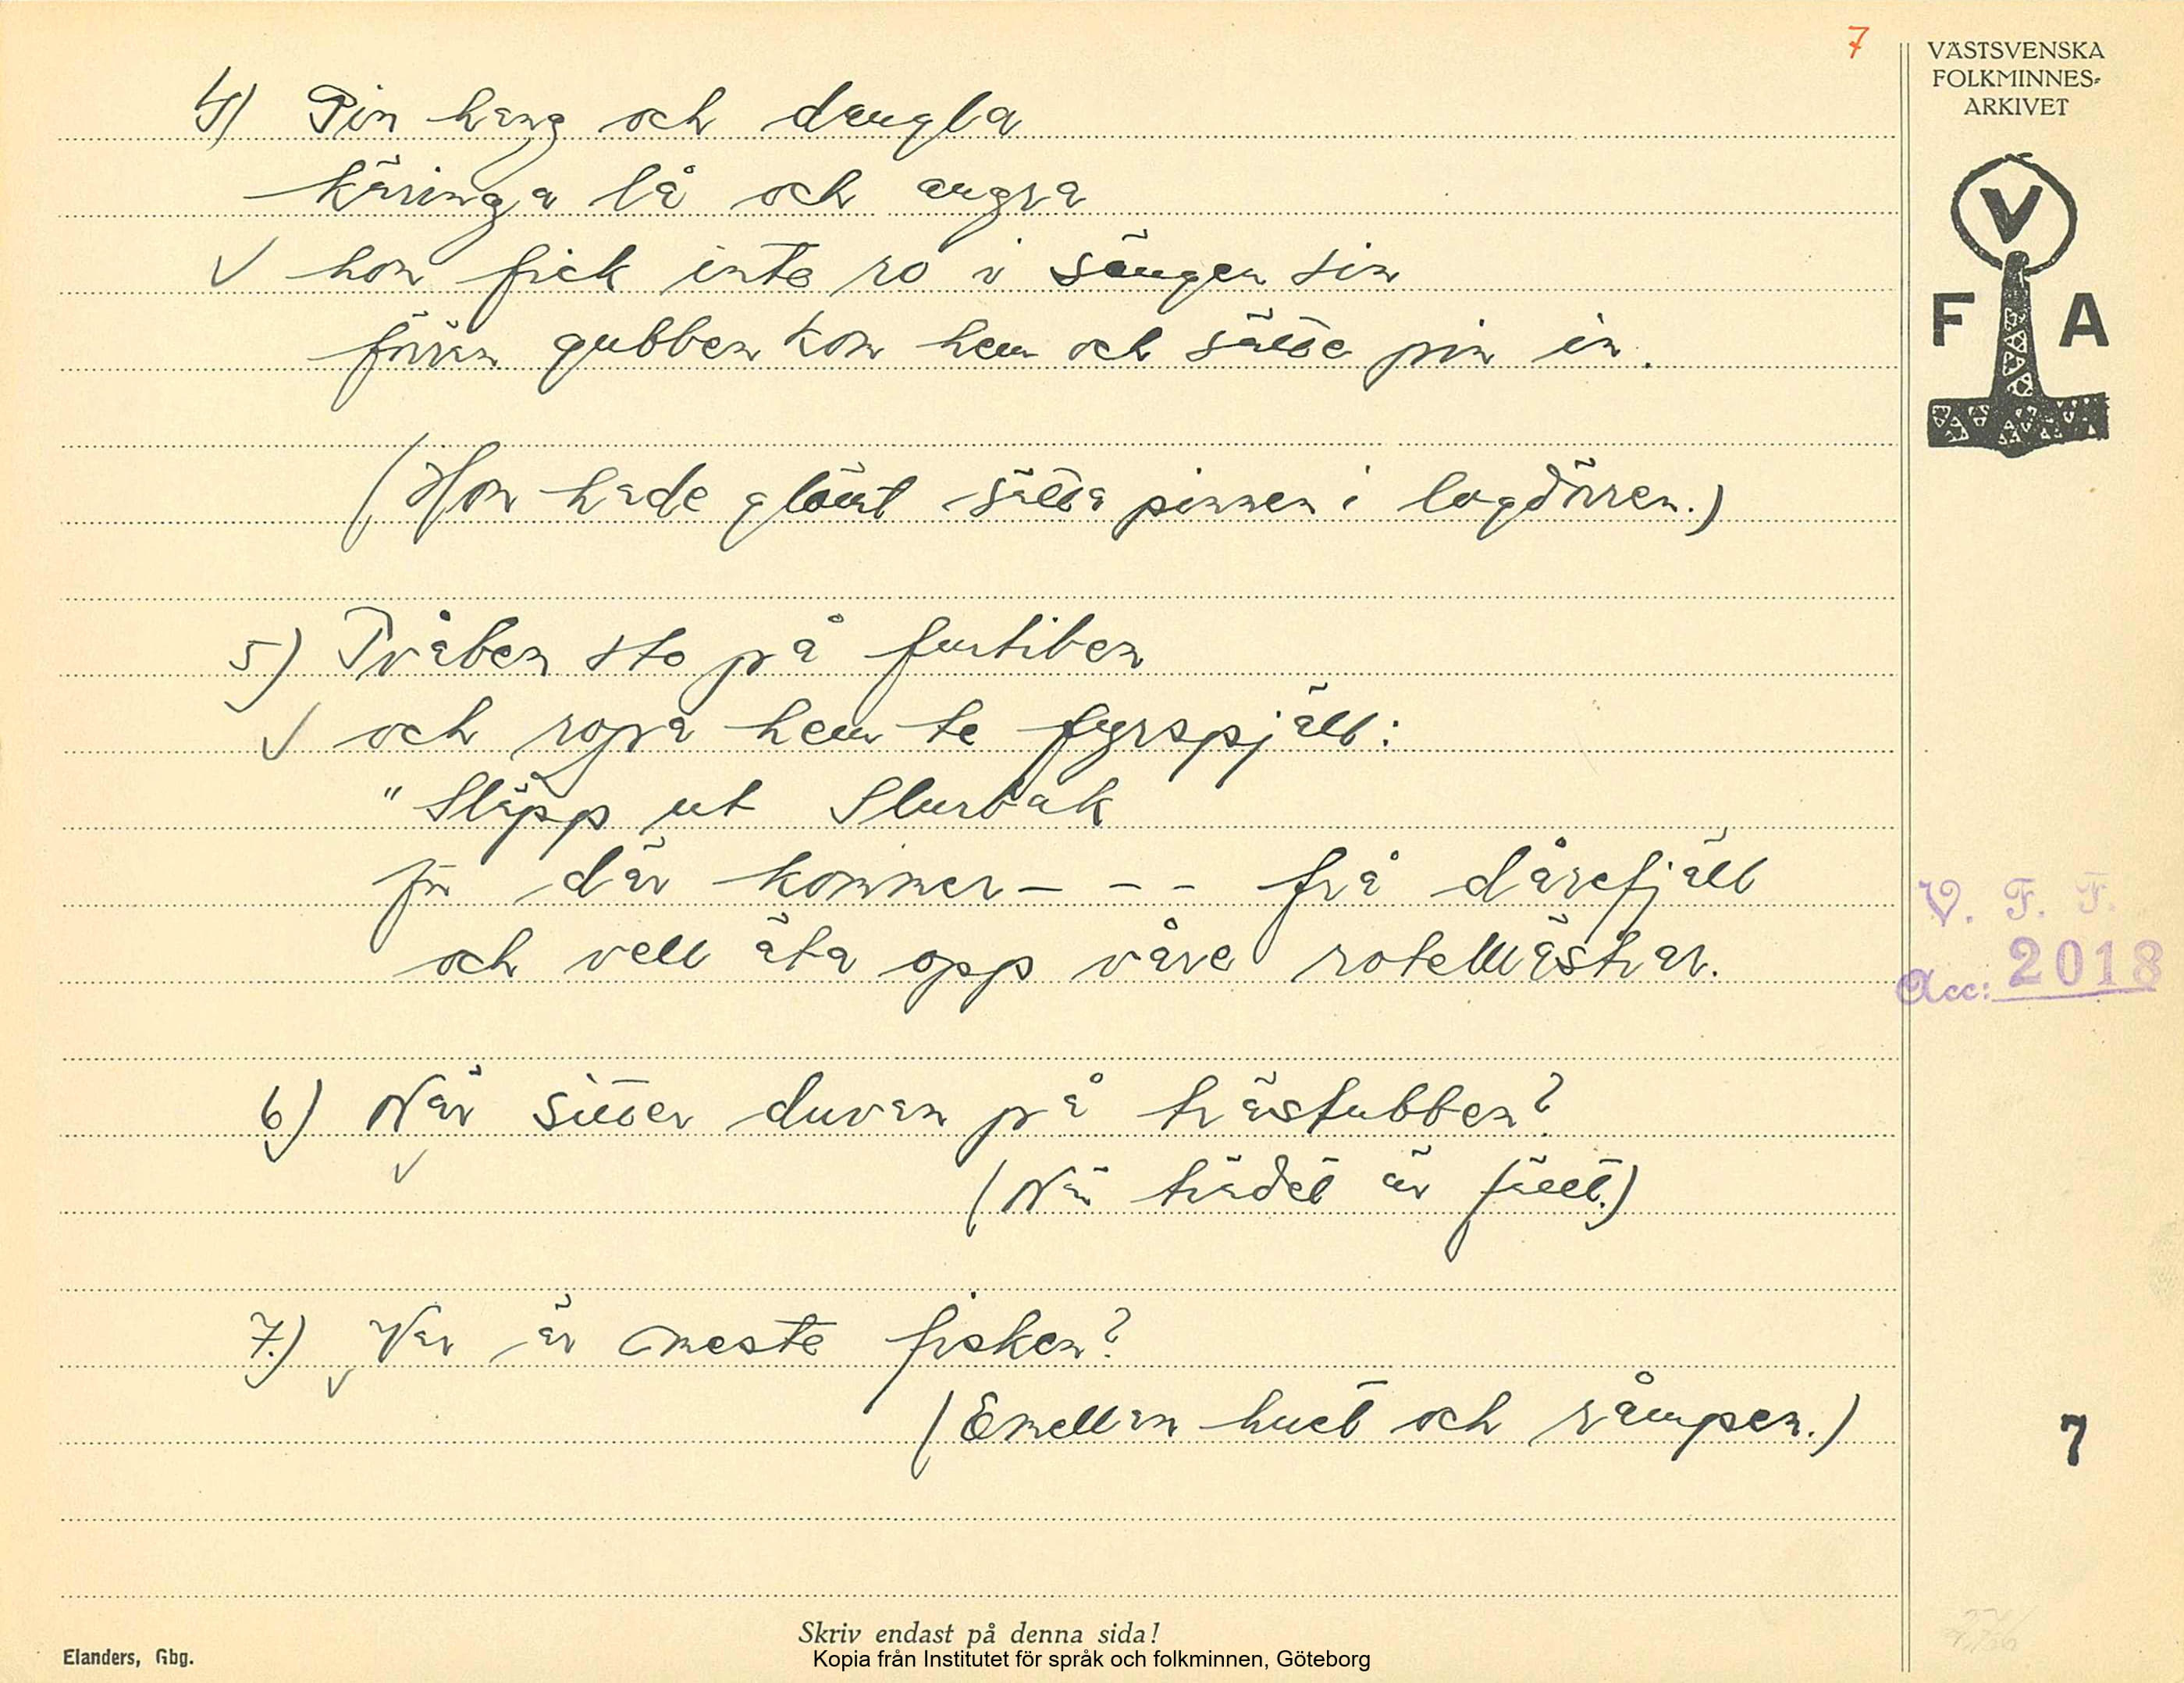 7
VÄSTSVENSKA
FOLKMINNES-
ARKIVET
4) Pin hang och dangla
käringa lå och angra
V hon fick inte ro i sängen sin
förrän gubben kom hem och sätte pin in.
V
F A
(Hon hade glömt sätta pinnen i logdörren.)
5) Tvåben sto på furtiben
V och ropa hem te fyrspjäll:
"Släpp ut Slurbak
för där kommer - - - frå dårefjäll
och vell äta opp våre rotellästrar.
V. F. F.
Acc: 2018
6) När sitter duvan på trästubben?
V
(När trädet är fällt.)
7.) Var är meste fisken?
V
(Emellan huet och råmpen.)
7
Skriv endast på denna sida!
Elanders, Gbg.
Kopia från Institutet för språk och folkminnen, Göteborg